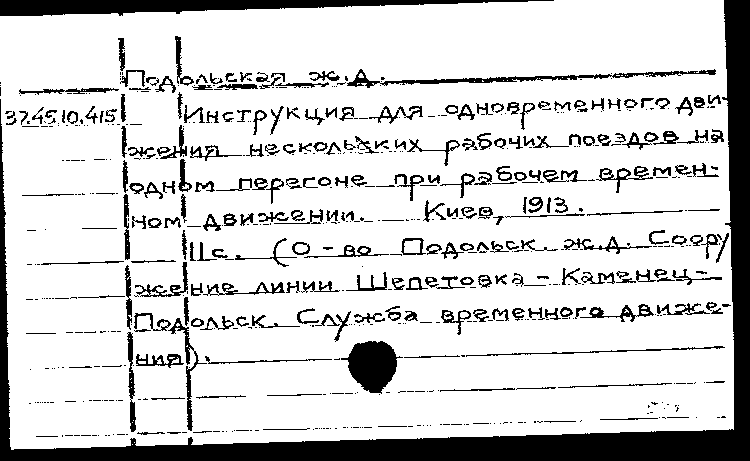 Подольская ж.д.
37.45.10.415 Инструкция для одновременного дви-
жения нескольких рабочих поездов на
одном перегоне при рабочем времен-
ном движении. Киев, 1913.
11с. (О-во Подольск. ж.д. Соору
жение линии Шепетовка - Каменец-
Подольск. Служба временного движе-
ния).